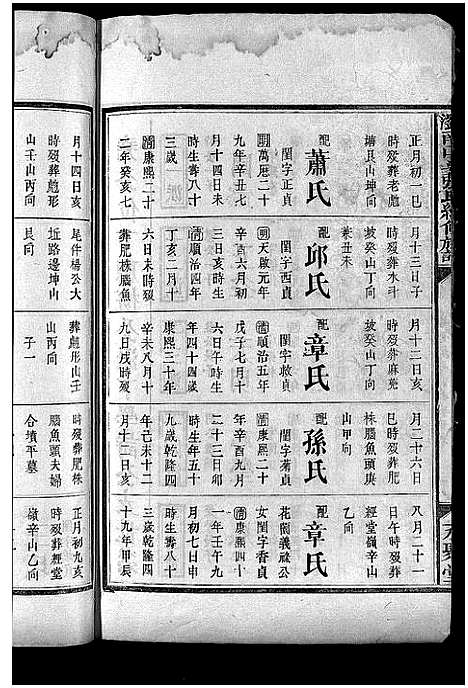 正月初一巳
時歿葬老虎
塘艮山坤向
配蕭氏
閨字正貞
明萬曆二十
九年辛丑七
月十四日未
時生壽八十
三歲
清康熙二十
二年癸亥七
月十四日亥
時歿葬虎形
山壬山丙向
月十三日子
時歿葬水斗
坡癸山丁向
兼丑未
配邱氏
閨字西貞
明天啟元年
辛酉六月辛
亥日亥時生
清順治四年
丁亥二月十
六日未時歿
葬肥株腦魚
尾件楊公大
近路邊坤山
艮向
月十二日亥
時歿葬麻苑
坡癸山丁向
配章氏
閨字救貞
清順治五年
戊子七月十
六日午時生
年四十四歲
康熙三十年
辛未八月十
九日戌時歿
葬虎形山壬
山丙向
子一
月二十六日
巳時歿葬肥
株腦魚頭庚
山甲向
配孫氏
閨字菊貞
清康熙二十
年辛酉九月
二十三日卯
時生年五十
九歲乾隆四
年己未十二
月十二日亥
時歿葬肥株
腦魚頭夫婦
合墳平墓
八月二十一
日午時歿葬
經堂嶺辛山
乙向
配章氏
花園義祿公
女閨字香貞
清康熙四十
一年壬午九
月初七日申
時生壽八十
三歲乾隆四
十九年甲辰
正月初九亥
時歿葬經堂
嶺辛山乙向